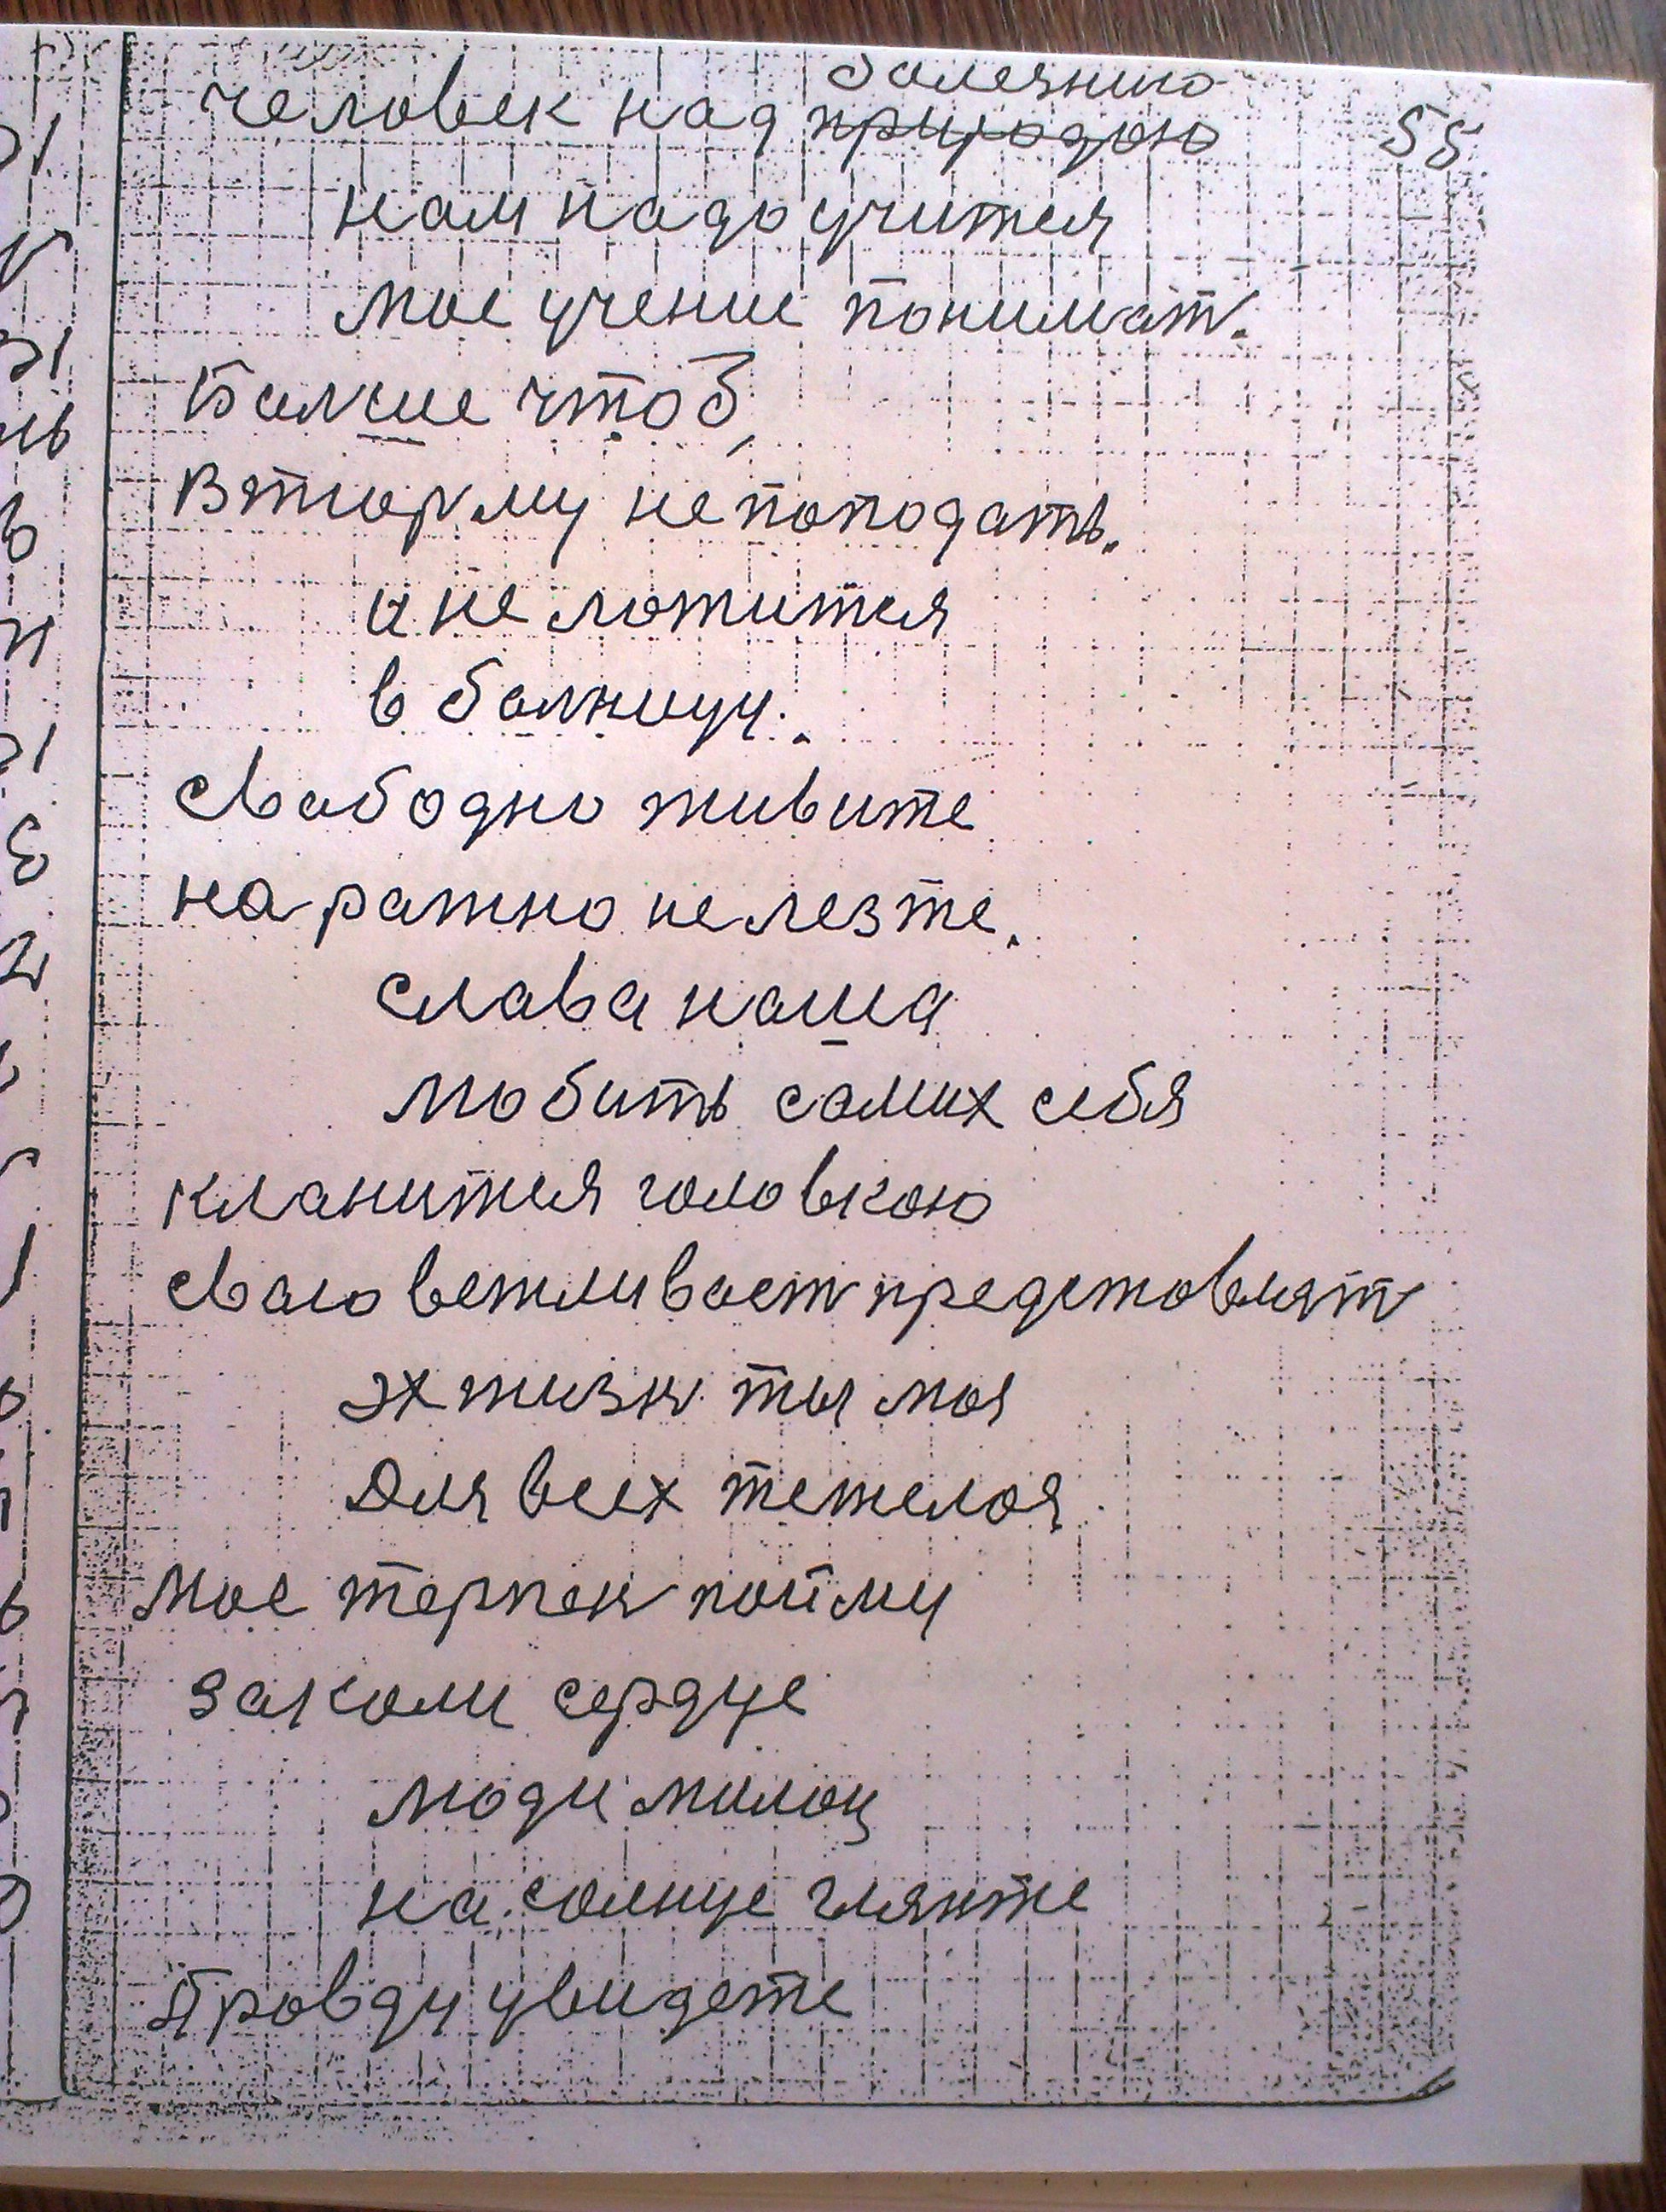 болезнию
человек над природою 55
нам надо учится
мое учение понимат.
Болше чтоб,
в тюрму не поподать.
и не ложится
в болницу.
свабодно живите
на ражно не лезте.
слава наша
любить самих себя
кланится головкою
сваю вежливаст предстовлят
эх жизн ты моя
Для всех тежелоя
мое терпен пойму
закали сердце
люди милои
на солнце глянте
Провду увидете